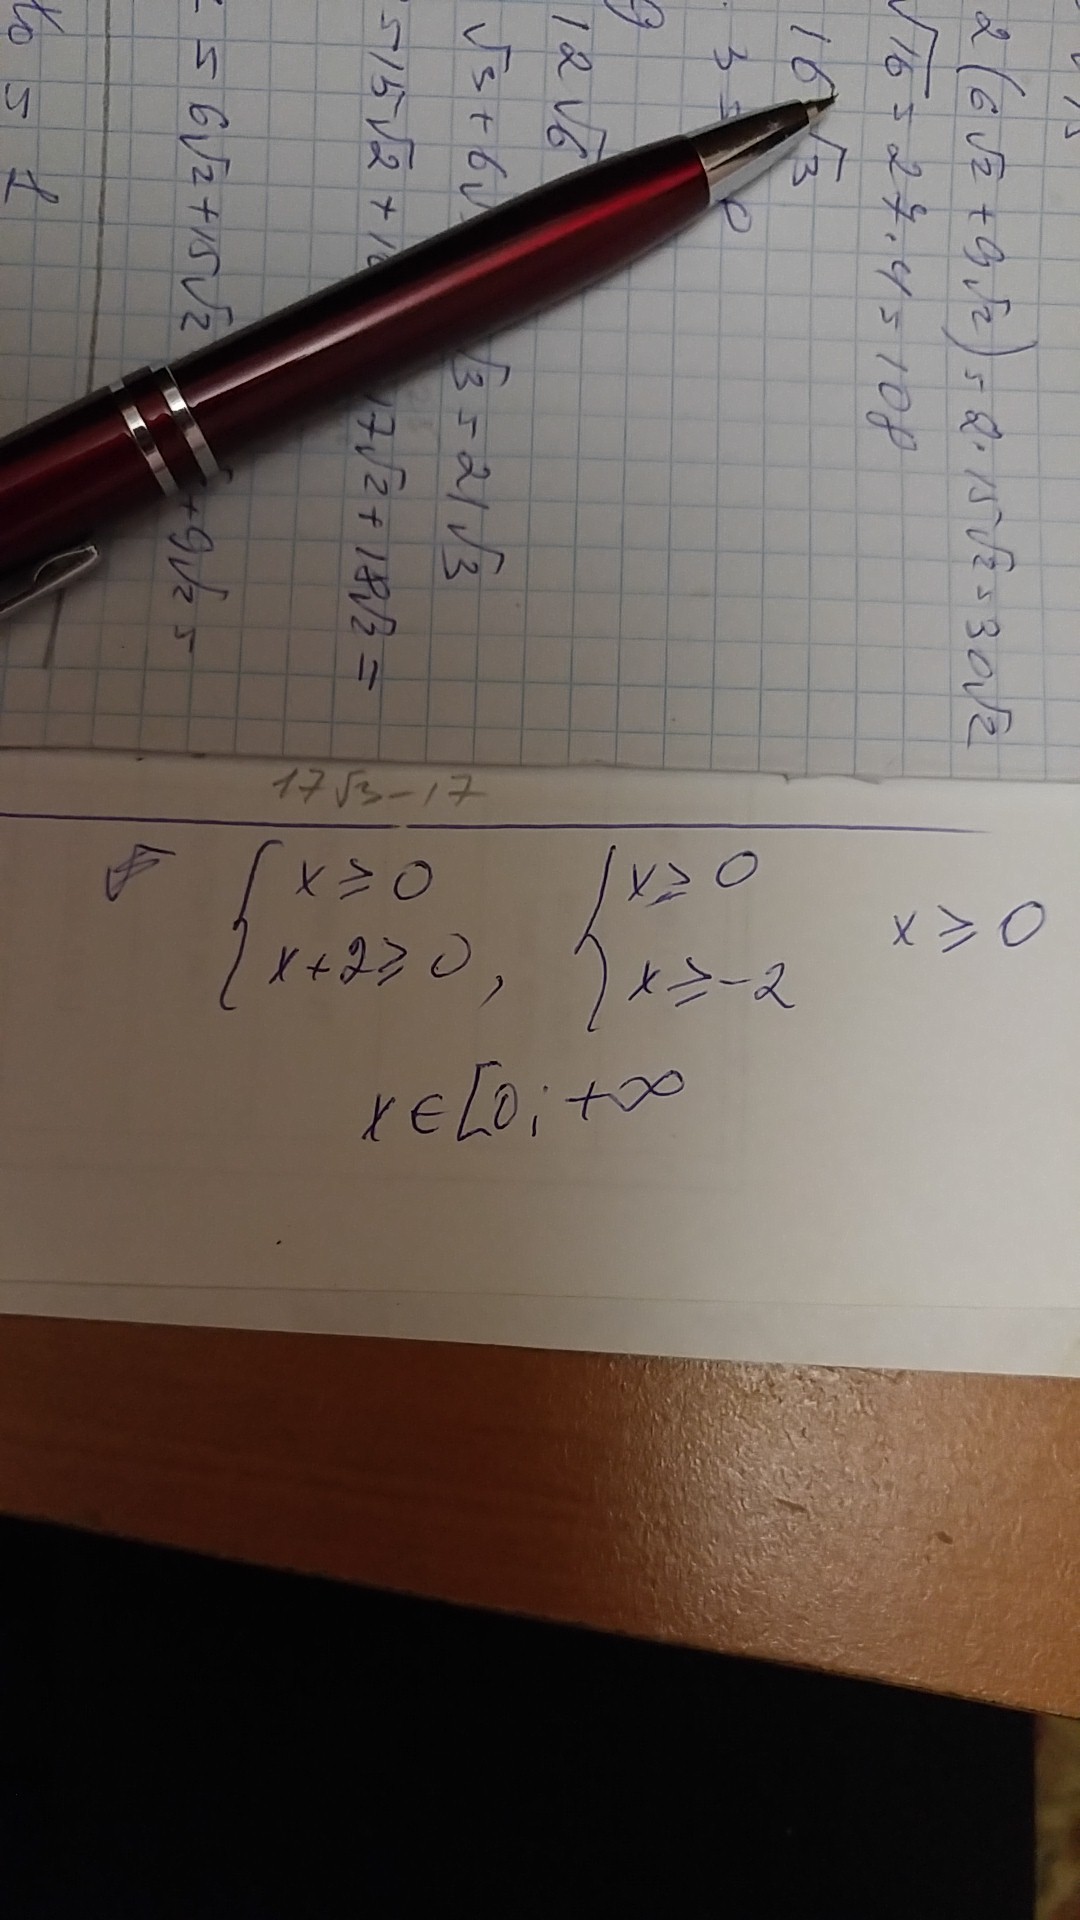 2(6√2+9√2)=2·15√2=30√2
√16=27·4=108
16 √3
3=
12√6
√3+6√ √3=21√3
=15√2+1 17√2+18√3=
=6√2+15√2 +9√2=
17√3-17
x≥0 x≥0 x≥0
x+2≥0, x≥-2
x∈[0;+∞